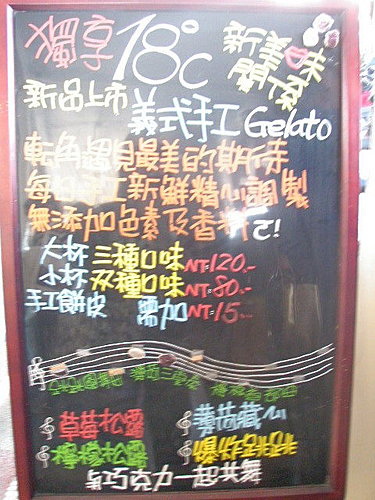 獨享18°C
新美味
關係
新品上市
義式手工Gelato
轉角遇見最美的期待
每日手工新鮮精心調製
無添加色素及香料ㄛ!
大杯 三種口味 NT:120.-
小杯 双種口味 NT:80.-
手工餅皮 需加 NT:15.-
草莓松露 薄荷藏心
檸檬松露 爆炸粉
與巧克力一起共舞